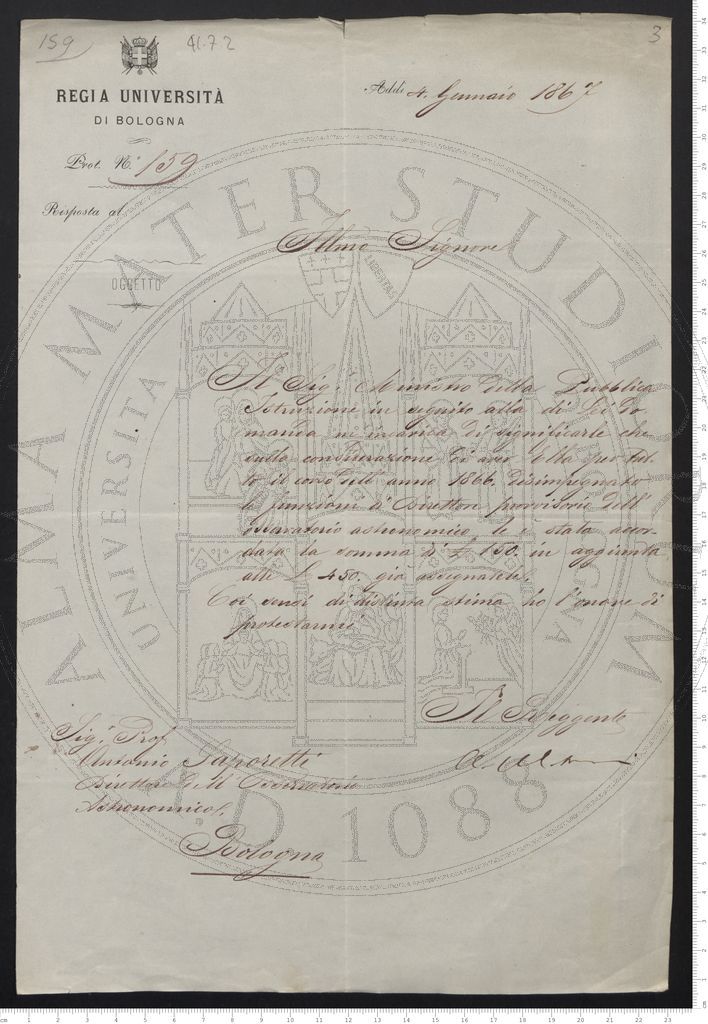 159
41.72
3
REGIA UNIVERSITÀ
DI BOLOGNA
Addi 4. Gennaio 1867
Prot. N.° 159
Risposta al
OGGETTO
Illmo Signore
Il Sig. Ministro della Pubblica
Istruzione in seguito alla di Lei do
manda mi incarica di significarle che
sulla considerazione di aver Ella per tut-
to il corso dell'anno 1866 disimpegnato
le funzioni di Direttore provvisorio dell'
Osservatorio astronomico, le è stata accor-
data la somma di £ 150. in aggiunta
alle £ 450. già assegnatele.
Coi sensi di distinta stima ho l'onore di
protestarmi
Il Reggente
Sig.r Prof.
Antonio Saporetti
Direttore dell'Osservatorio
Astronomico
Bologna
ALMA MATER STUDIORUM
UNIVERSITA
BOLOGNA
LIBERTAS
A.D. 1088